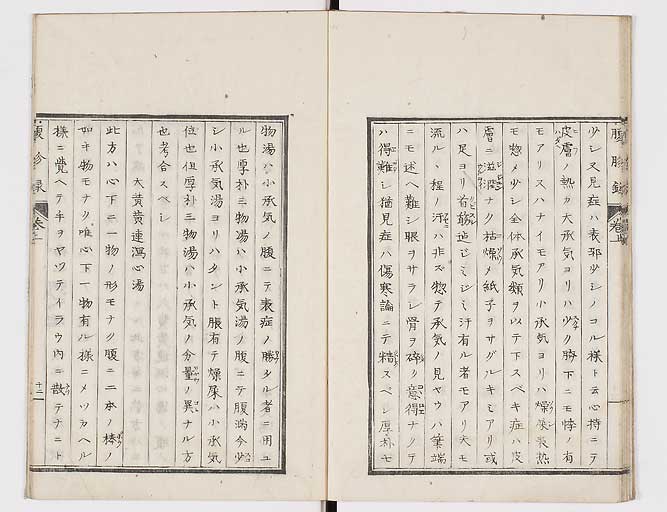 少シ又見症ハ表邪少シノコル様ト云心持ニテ
皮膚ノ熱カ大承気ヨリハ少ク胯下ニモ悸ノ有
モアリスハナイモアリ小承気ヨリハ燥屎表熱
モ惣メ少シ全体承気類ヲ以テ下スベキ症ハ皮
膚ニ滋潤ナク枯燥〆紙子ヲサグルキミアリ或
ハ足ヨリ首筋迠ビミビミ汗有ル者モアリ夫モ
流ルヽ程ノ汗ハ非ズ惣テ承気ノ見ヤウハ筆端
ニモ述ヘ難シ眼ヲサラシ骨ヲ砕ク意得ナクテ
ハ得難シ猶見症ハ傷寒論ニテ精スベシ厚朴七
物湯ハ小承気ノ腹ニテ表症ノ勝タル者ニ用ユ
ル也厚朴三物湯ハ小承気湯ノ腹ニテ腹満今少
シ小承気湯ヨリハタント脹有テ燥屎ハ小承気
位也但厚朴三物湯ハ小承気ノ分量ノ異ナル方
也考合スベシ
大黄黄連瀉心湯
此方ハ心下ニ一物ノ形モナク腹ニ二本ノ棒ノ
如キ物モナク唯心下一物有ル様ニメツカヘル
様ニ覚ヘテ手ヲヤツテイラウ内ニ散テナニト
腹診録
巻之上
十二